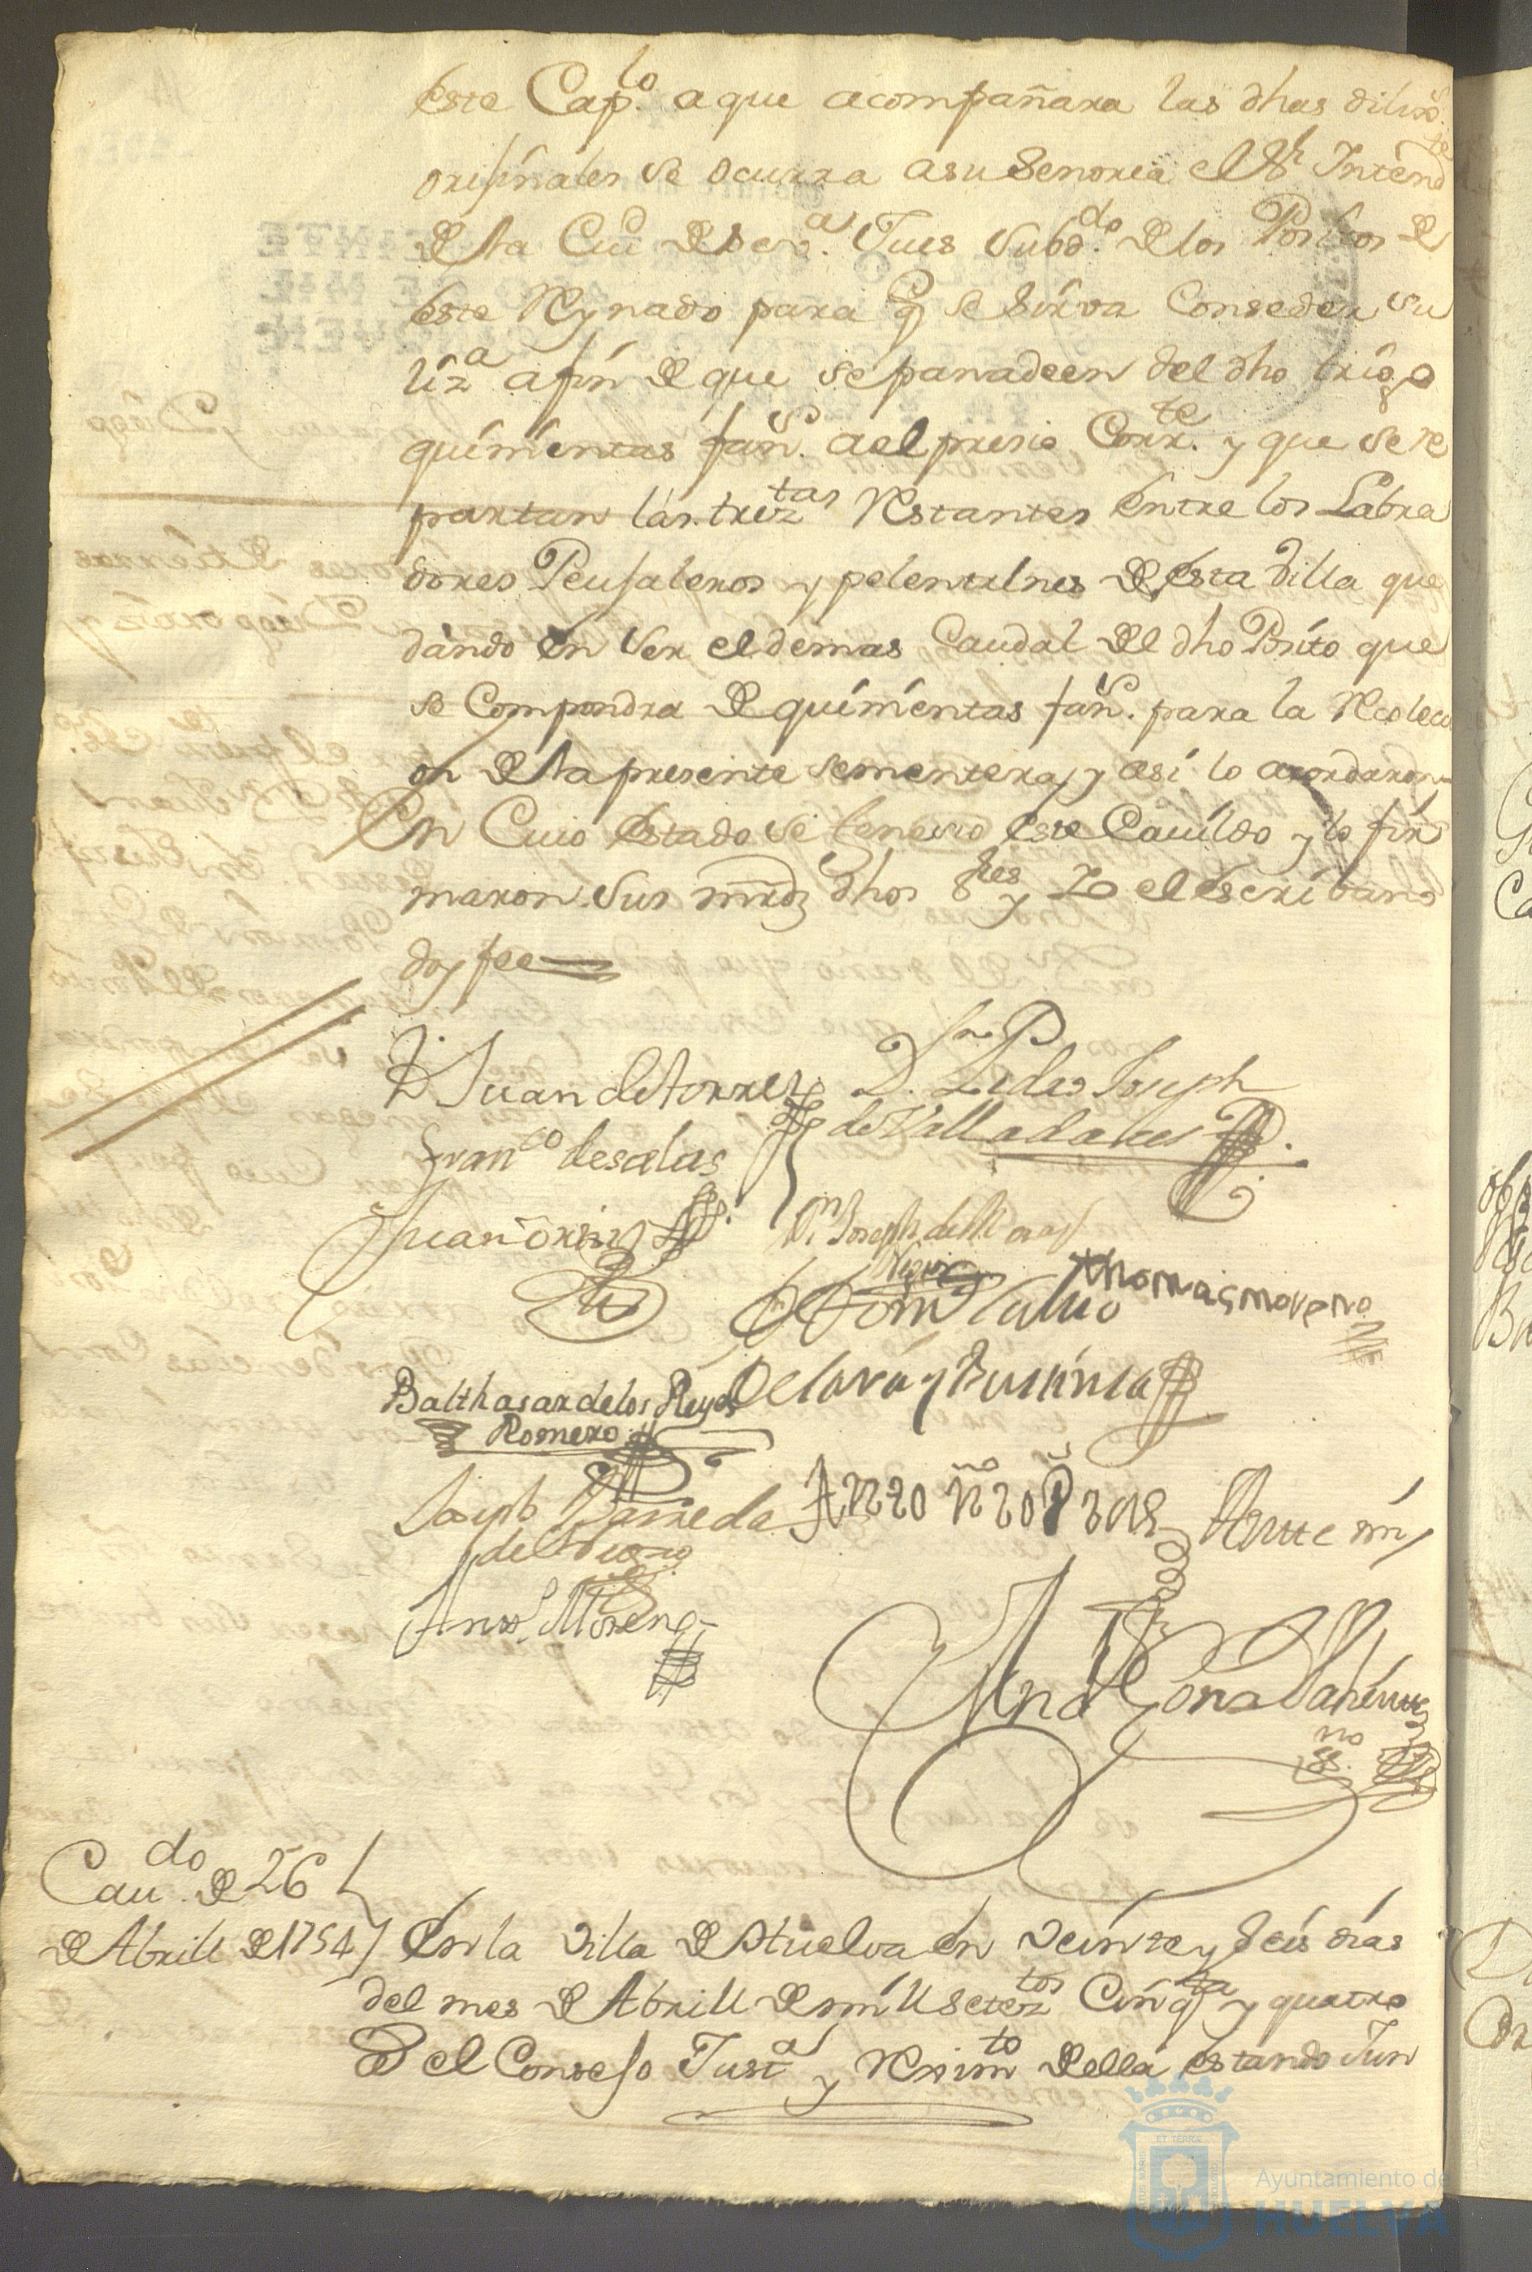 este Cap.lo a que acompañara las dhas dilixs.
orijinales se ocurra a su Senoria el Sr. Intendte
de la Ciud de Seva. Jues Subddo. de los Positos de
este Reynado para q se sirva Conseder su
liza a fin de que se panadeen del dho trigo
quinientas fans. a el presio Corrte. y que se re
partan las treztas Restantes entre los Labra
dores Peujaleros y pelentrines de esta Villa que
dando en ser el demas Caudal del dho Posito que
se Compondra de quinientas fans. para la Recolecci
on de la presente sementera, y asi lo acordaron
En Cuio estado se fenesio este Cavildo y lo fir
maron sus mrds dhos Sres y Yo el escribano
doy fee
D. Juan de torres
Dn. Pedro Joseph
de Valladares
Franco de salas
Juan Ortiz
Dn. Joseph del
thomas moreno
Calvo
De lara y
Balthasar de los Reyes
Romero
Joseph Barreda
Ante mi
Anto. Moreno
no
SS.
Caudo. de 26
de Abrill de 1754
En la Villa de Huelva en veinte y seis dias
del mes de Abrill de mill seteztos Cinqta y quatro
el Consejo Justa y Reximto della estando Jun
ET TERRÆ
Ayuntamiento de
HUELVA